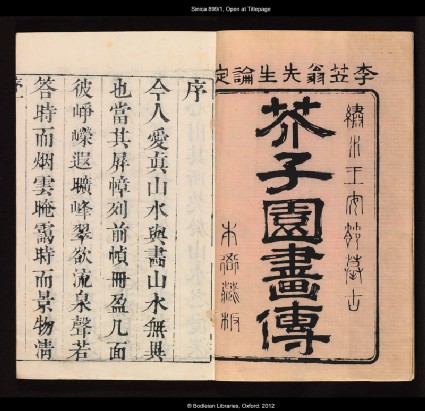 Sinica 899/1, Open at Titlepage
李笠翁先生論定
繡水王安節摹古
芥子園畫傳
本衙藏板
序
今人愛真山水與畫山水無異
也當其屏幛列前幀冊盈几面
彼崢嶸遐曠峰翠欲流泉聲若
答時而烟雲晻靄時而景物凊
序
© Bodleian Libraries, Oxford. 2012